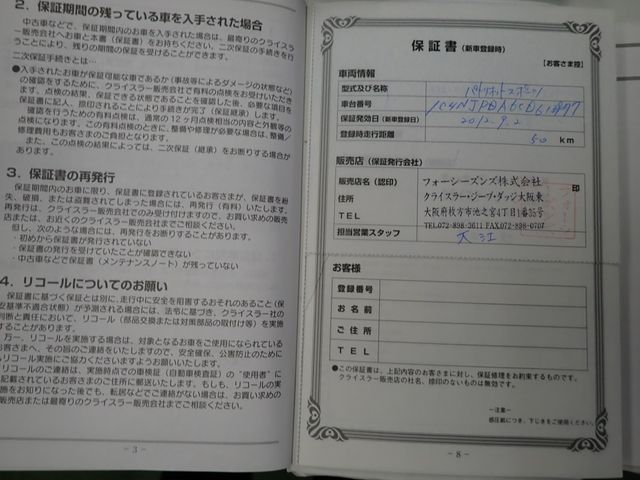 2. 保証期間の残っている車を入手された場合
中古車などで、保証期間内のお車を入手された場合は、最寄りのクライスラ
ー販売会社へお車と本書（保証書）をお持ちください。二次保証の手続きを行
うことにより、残りの期間の保証を受けることができます。
二次保証手続きとは…
●入手されたお車が保証可能な車であるか（事故等によるダメージの状態など）
の確認をするために、クライスラー販売会社で有料の点検をお受けいただき
ます。点検の結果、保証できる状態であることを確認した後、必要な項目を
保証書に記入、捺印されることにより手続きが完了（保証継承）します。
確認を行うための有料点検は、通常の12ヶ月点検相当の内容と外観等の
点検になります。この有料点検のときに、整備や修理が必要な場合は、整備／
修理費用もお客さまのご負担となります。
また、この点検の結果によっては、二次保証（継承）をお断りする場合が
あります。
3. 保証書の再発行
保証期間内のお車に限り、保証書に登録されているお客さまが、保証書を紛
失、破損、または盗難されてしまった場合には、再発行（有料）いたします。
再発行は、クライスラー販売会社でのみ受け付けますので、お買い求めの販売
店または、お近くのクライスラー販売会社までご相談ください。
但し、次のような場合には、再発行をお断りすることがあります。
・初めから保証書が発行されていない
・保証書の発行を受けていたことが確認できない
・中古車などで保証書（メンテナンスノート）が残っていない
4. リコールについてのお願い
保証書に基づく保証とは別に、走行中に安全を阻害するおそれのあること（保
安基準不適合状態）が予測される場合には、法令に基づき、クライスラー社の
判断と責任において、リコール（部品交換または対策部品の取付け等）を実施
することがあります。
万一、リコールを実施する場合は、対象となるお車をご使用になられている
お客さまへ、その旨のご連絡をいたしますので、安全確保、公害防止のために
リコール実施にご協力くださいますようお願いいたします。
リコールのご連絡は、実施時点での車検証（自動車検査証）の“使用者”に
記載されているお客さまのご住所に郵送いたします。もしも、リコールの実
施をお知りになった後でも、転居などでご連絡がない場合は、お買い求めの
販売店または最寄りのクライスラー販売会社までご相談ください。
－3－
保証書（新車登録時）
【お客さま控】
車両情報
型式及び名称 パトリオットスポーツ
車台番号
保証発効日（新車登録日） 2012.9.2
登録時走行距離 50 km
販売店（保証発行会社）
販売店名（認印） フォーシーズンズ株式会社 印
住所 クライスラー・ジープ・ダッジ大阪東
大阪府枚方市池之宮4丁目1番35号
TEL TEL.072-898-3611 FAX.072-898-0707
担当営業スタッフ 大江
お客様
登録番号
お名前
ご住所
TEL
●この保証書は、上記内容のお客さまに対し、保証修理をお約束するものです。
クライスラー販売店の社名、捺印のないものは無効です。
－注意－
感圧紙につき、下じきをご使用ください。
－8－